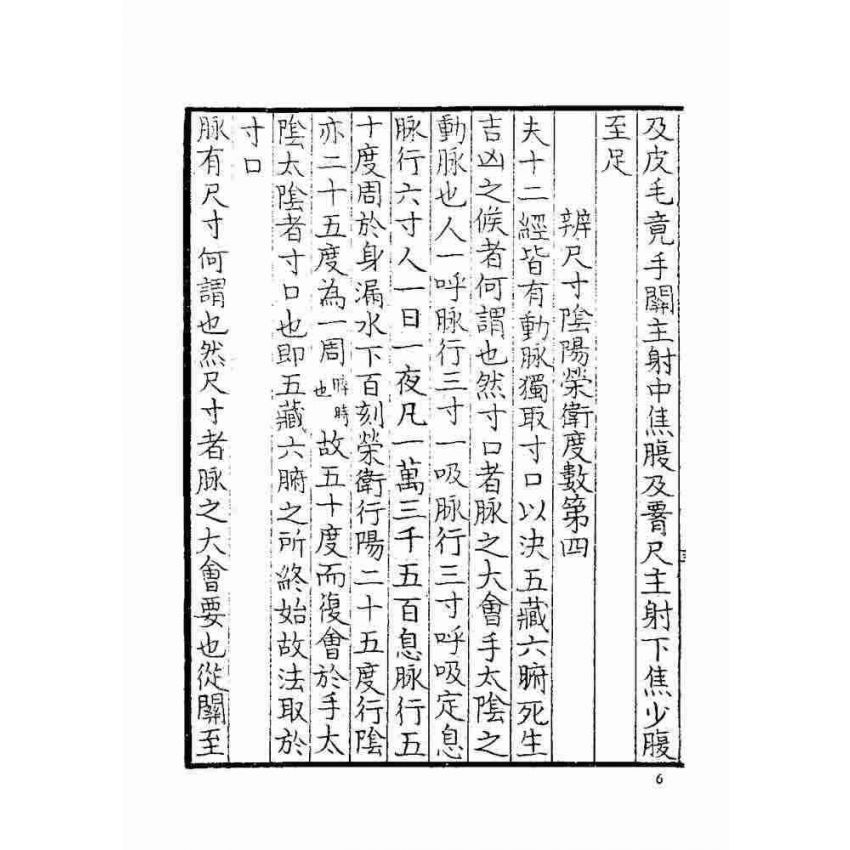 及皮毛竟手關主射中焦腹及𦝫尺主射下焦少腹
至足
辨尺寸陰陽榮衛度數第四
夫十二經皆有動脉獨取寸口以決五藏六腑死生
吉凶之候者何謂也然寸口者脉之大會手太陰之
動脉也人一呼脉行三寸一吸脉行三寸呼吸定息
脉行六寸人一日一夜凡一萬三千五百息脉行五
十度周於身漏水下百刻榮衛行陽二十五度行陰
亦二十五度為一周晬時也故五十度而復會於手太
陰太陰者寸口也即五藏六腑之所終始故法取於
寸口
脉有尺寸何謂也然尺寸者脉之大會要也從關至
6